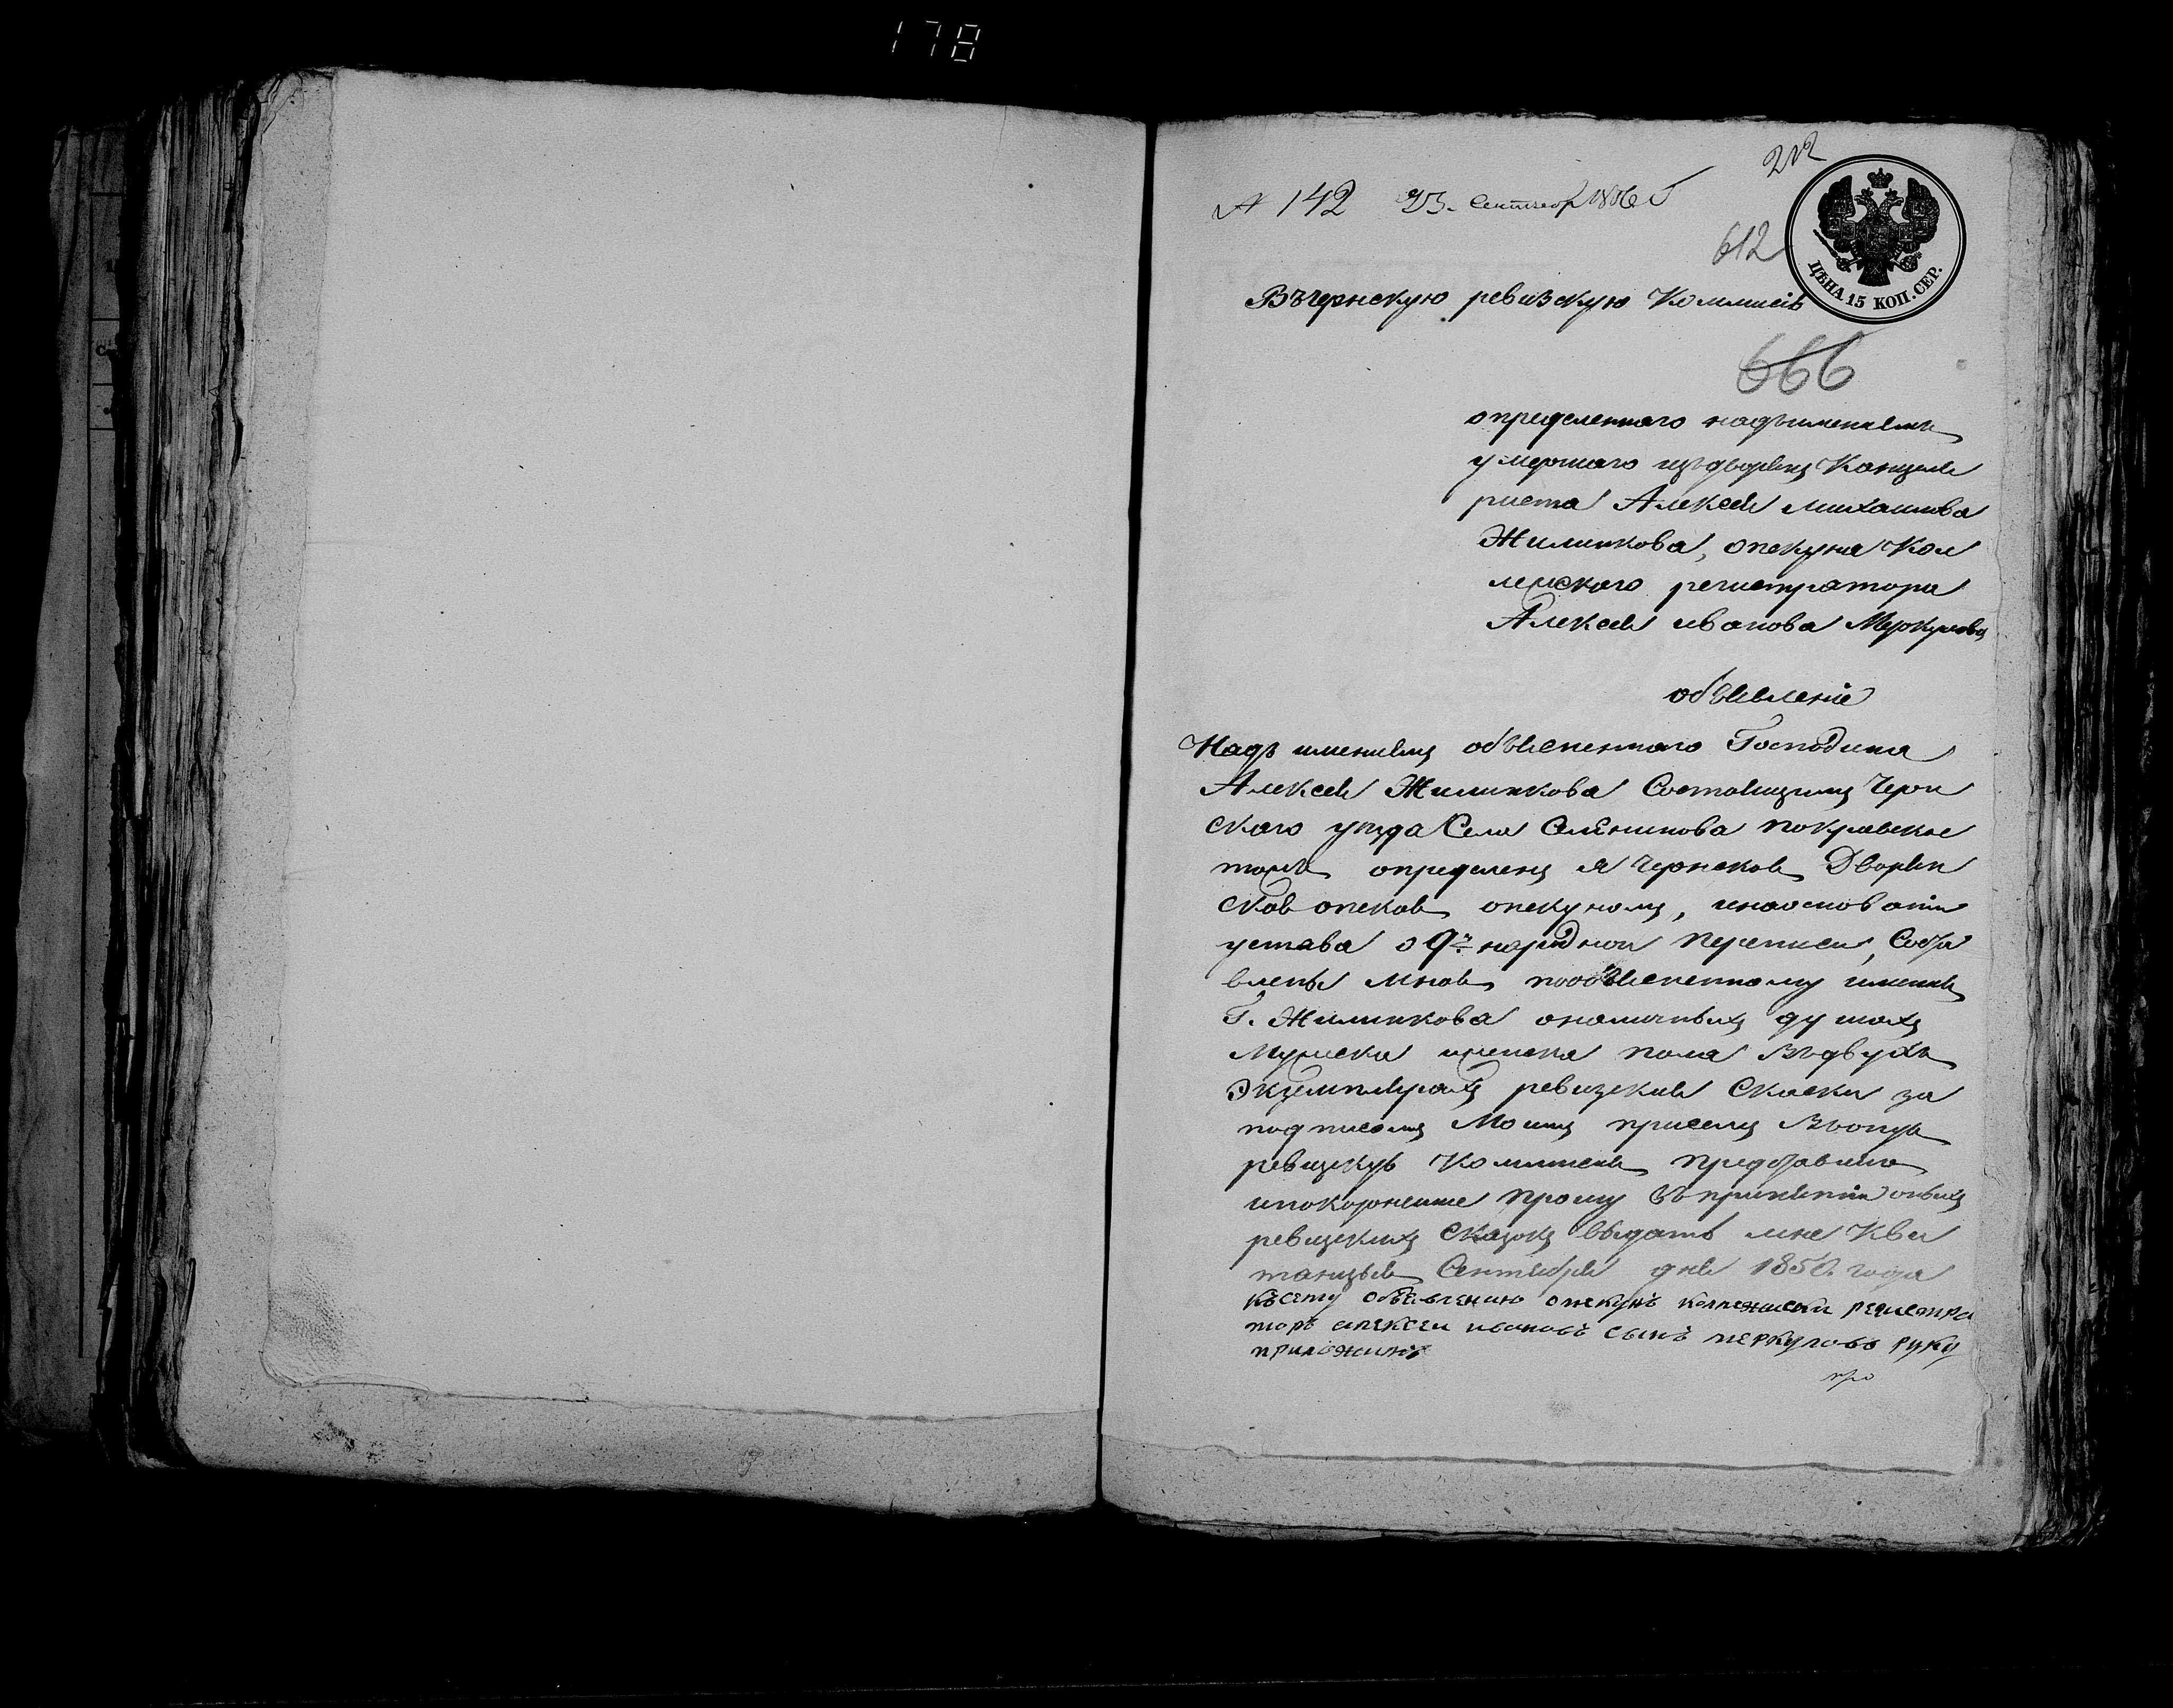 178
212
№ 142 23. Сентябр 1850 г
612
ЦѢНА 15 КОП. СЕР.
Въчернскую ревизскую Комисiю
666
определеннаго надъимениемъ
умершаго издворянъ Канцеля
риста Алексея михаилова
Жилинкова, опекуна Кол
лежскаго регистратора
Алексея иванова Меркулова
объявленiе
Надъ имениемъ объясненнаго Господина
Алексея Жилинкова Состоящимъ Черн
скаго уезда Села покравское
тожъ определенъ я Чернскою Дворян
скою опекою опекуномъ, инаоснованiи
устава о 9й народной переписи, Соста
влены мною пообъясненному имению
Г. Жилинкова оналичныхъ душахъ
Мужска иженска пола въдвухъ
Экземплярахъ ревизские Скаски за
подписомъ Моимъ присемъ Вооную
ревизскую Комисию представляю
ипокорнеише прошу въпринятiи оныхъ
ревизскихъ Сказокъ выдать мне Кви
танцыю Сентября дня 1850 года
Късему объявлению опекунъ коллежскои регистра
торъ алексеи ивановъ сынъ меркуловъ руку
приложилъ